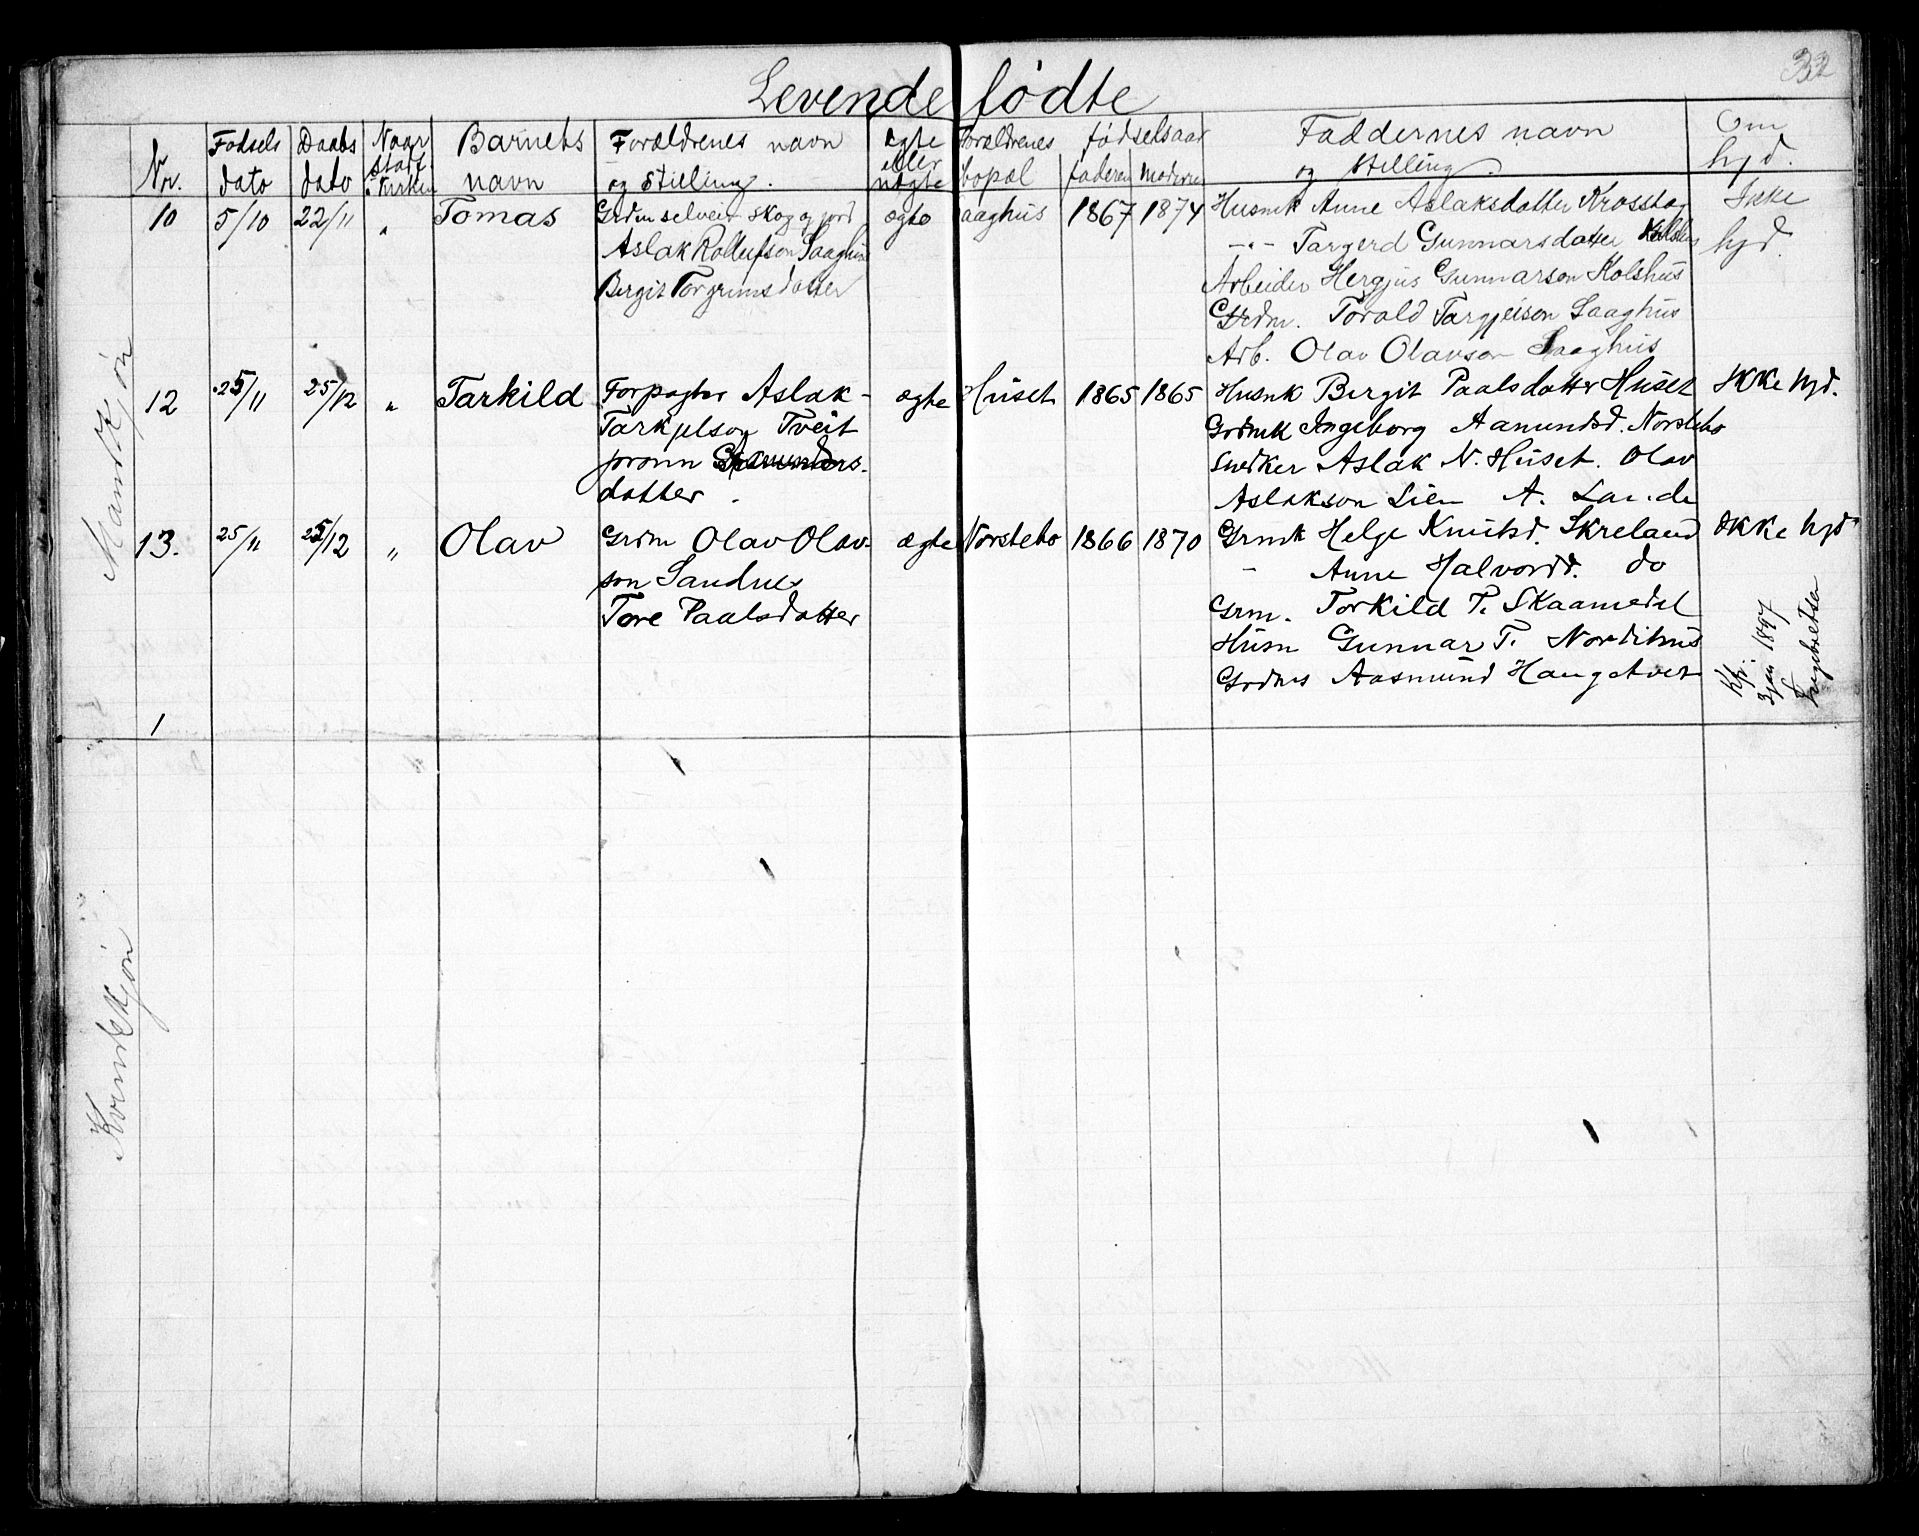 32
Levende fødte
Nr. Fødsels dato Daabs dato Naar stadf. i Kirken Barnets navn Forældrenes navn og Stilling. ægte eller uægte Forældrenes bopæl fødselsaar faderen moderen Faddernes navn og stilling. Om hjd.
Mandkjøn
10 5/10 22/11 " Tomas Grdm selveier skog og jord ægte Saaghus 1867 1874 Husmk Anne Aslaksdatter Ikke
Aslak Rollefson Saaghus -"- Targerd Gunnarsdatter hjd.
Bergit Torgrimsdatter Arbeider Hergjus Gunnarson Kolshus
Grdm. Torald Targjeison Saaghus
Arb. Olav Olavson Saaghus
12 25/11 25/12 " Tarkild Forpagter Aslak ægte Huset 1865 1865 Husmk Bergit Paalsdatter Huset Ikke hjd.
Tarkjelson Tveit Grdmk Ingeborg Aamundsd. Norstebo
Snedker Aslak N. Huset. Olav
datter. Aslakson Lien A. Lande
13. 25/11 25/12 " Olav Grdm Olav Olav- ægte Norstebo 1866 1870 Grmk Helge Knutsd. Skreland Ikke hjd
son Sandnes - Anne Halvordd. do
Tore Paalsdatter Grm. Torkild T. Skaamedal
Husm Gunnar T. Nordihus
Aasmund Haugetvet
3 jan 1897
Ingebretsen
1
Kvindekjøn